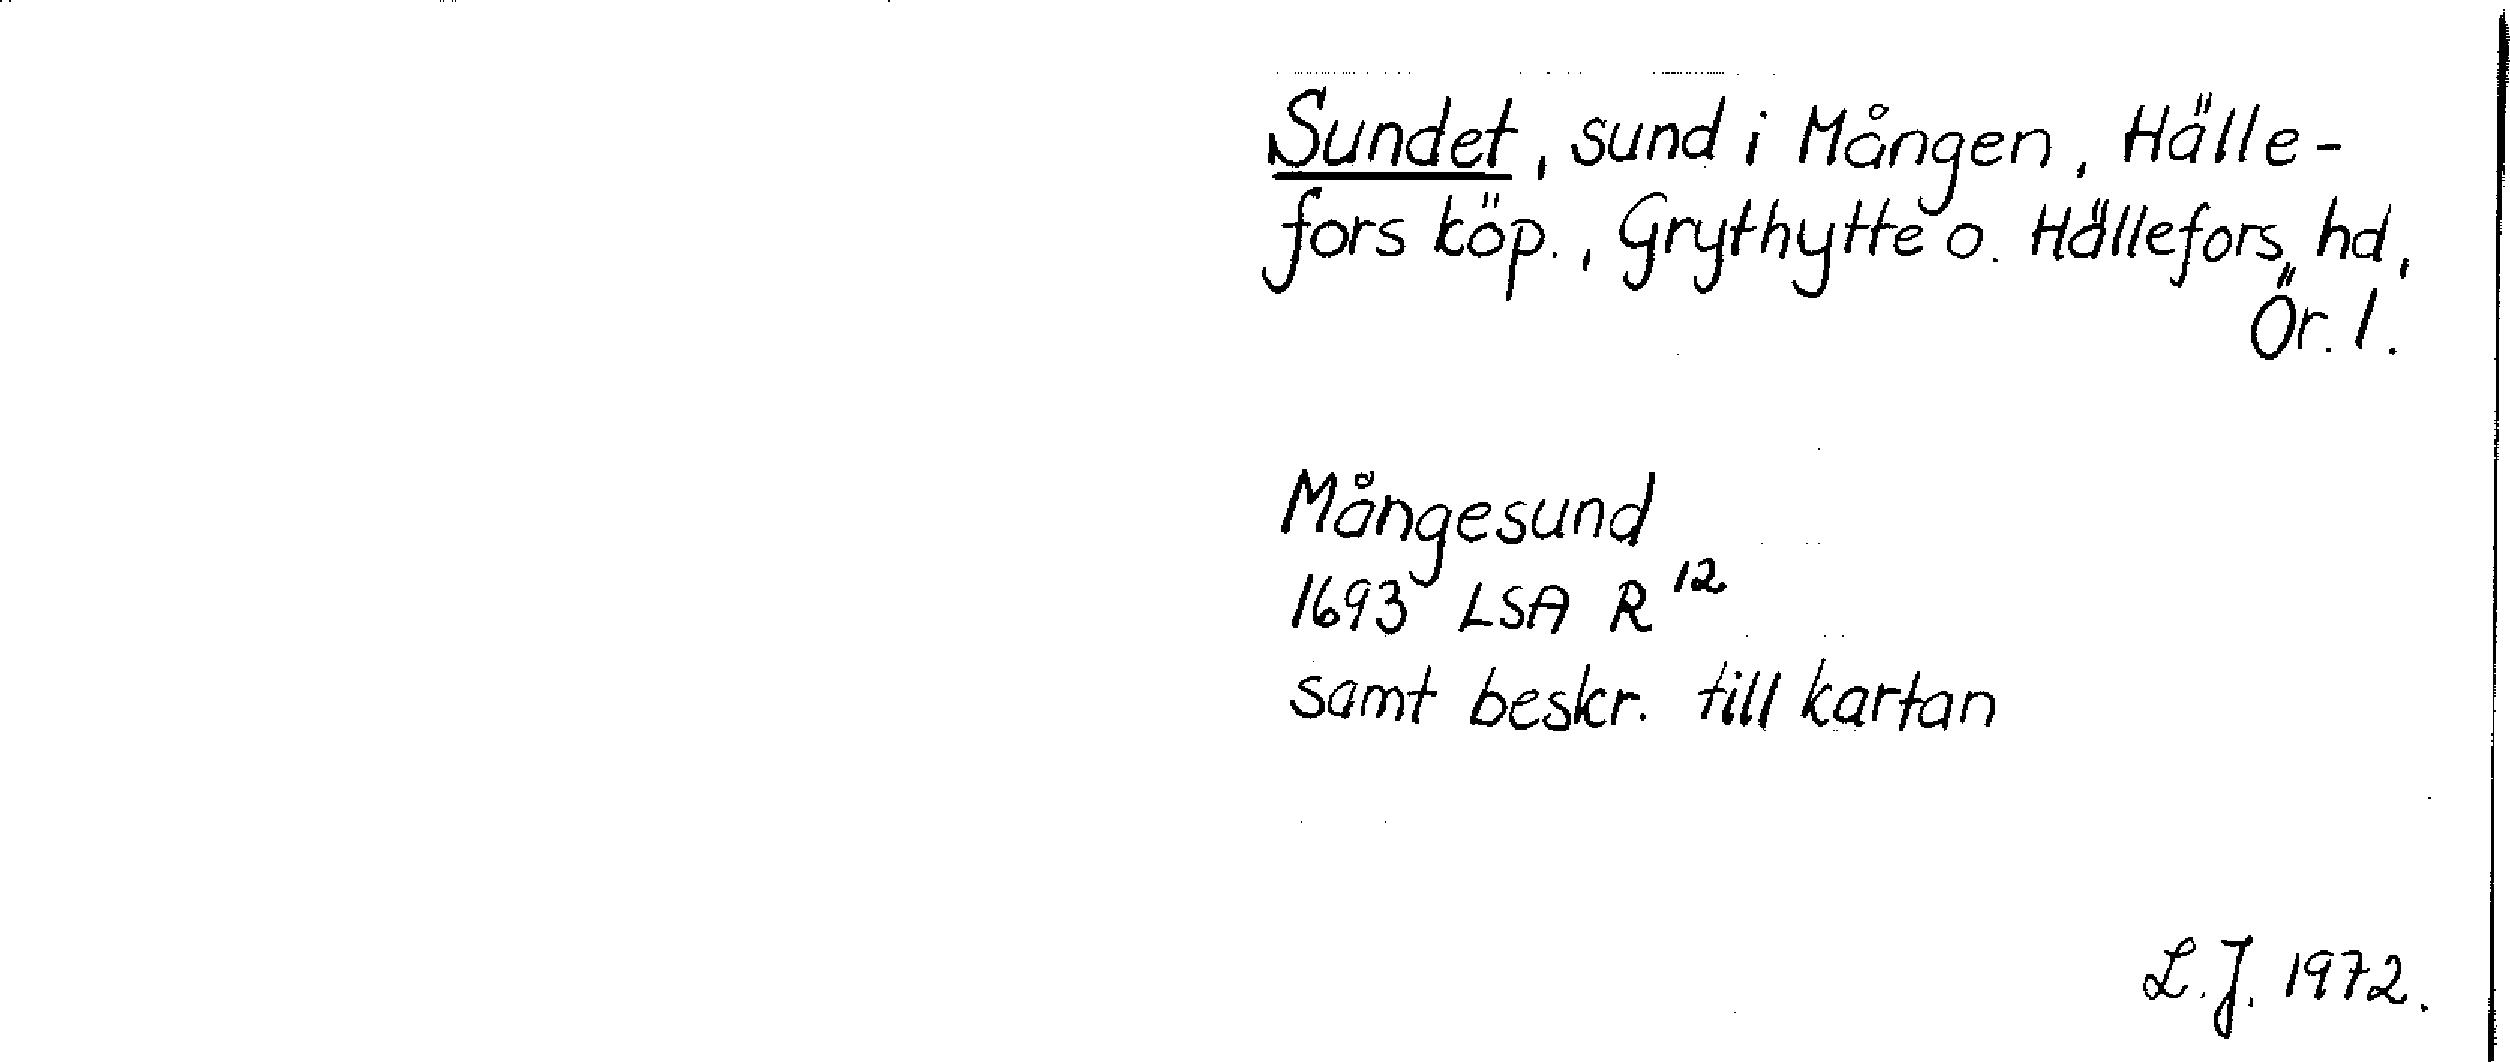 Sundet, sund i Mången, Hälle-
fors köp., Grythytte o. Hällefors hd,
Ör. l.
Mångesund
1693 LSA R 12
samt beskr. till kartan
L.J. 1972.